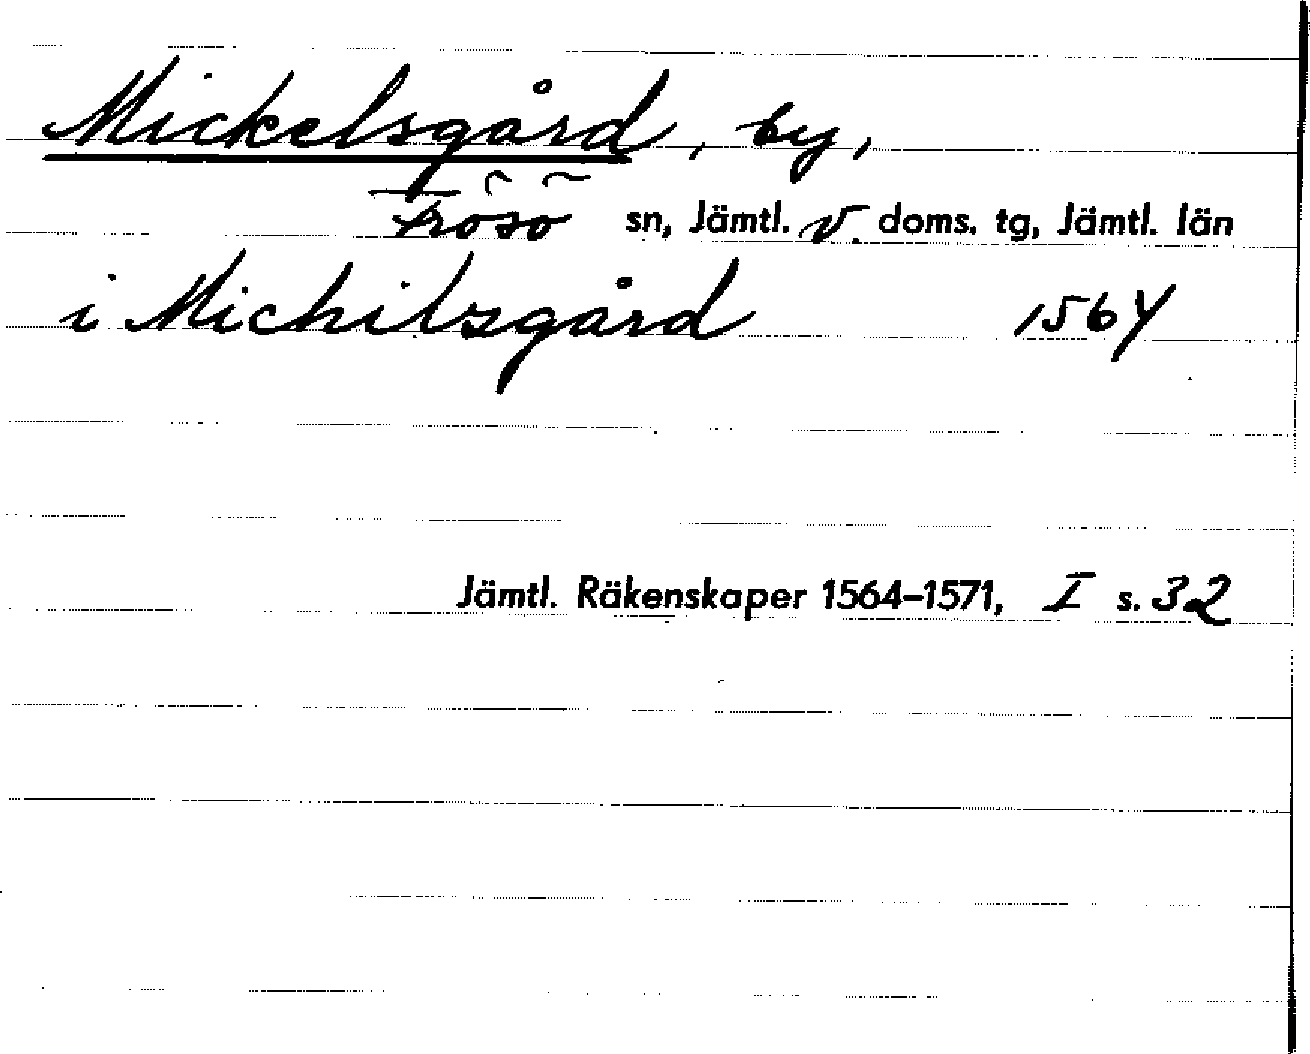 Mickelsgård, by,
Frösö sn, Jämtl. v. doms. tg, Jämtl. län
i Michilsgård 1564
Jämtl. Räkenskaper 1564-1571, I s. 32